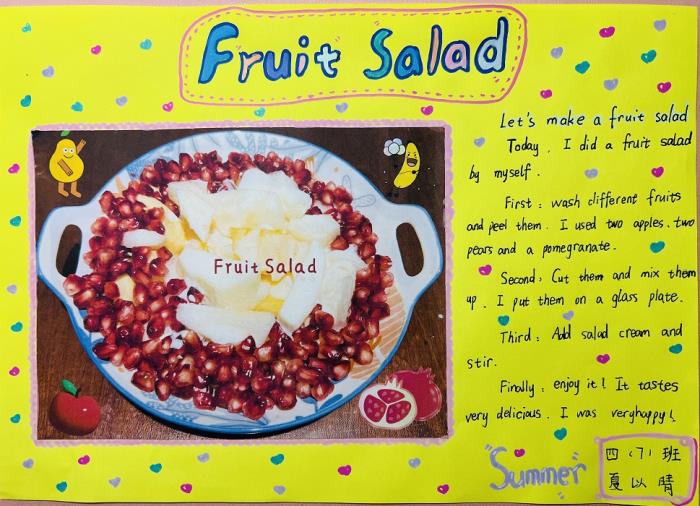 Fruit Salad
Let's make a fruit salad
Today, I did a fruit salad
by myself.
First: wash different fruits
and peel them. I used two apples, two
pears and a pomegranate.
Second: Cut them and mix them
up. I put them on a glass plate.
Third: Add salad cream and
stir.
Finally: enjoy it! It tastes
very delicious. I was veryhappy!
Fruit Salad
Summer
四(7)班
夏以晴